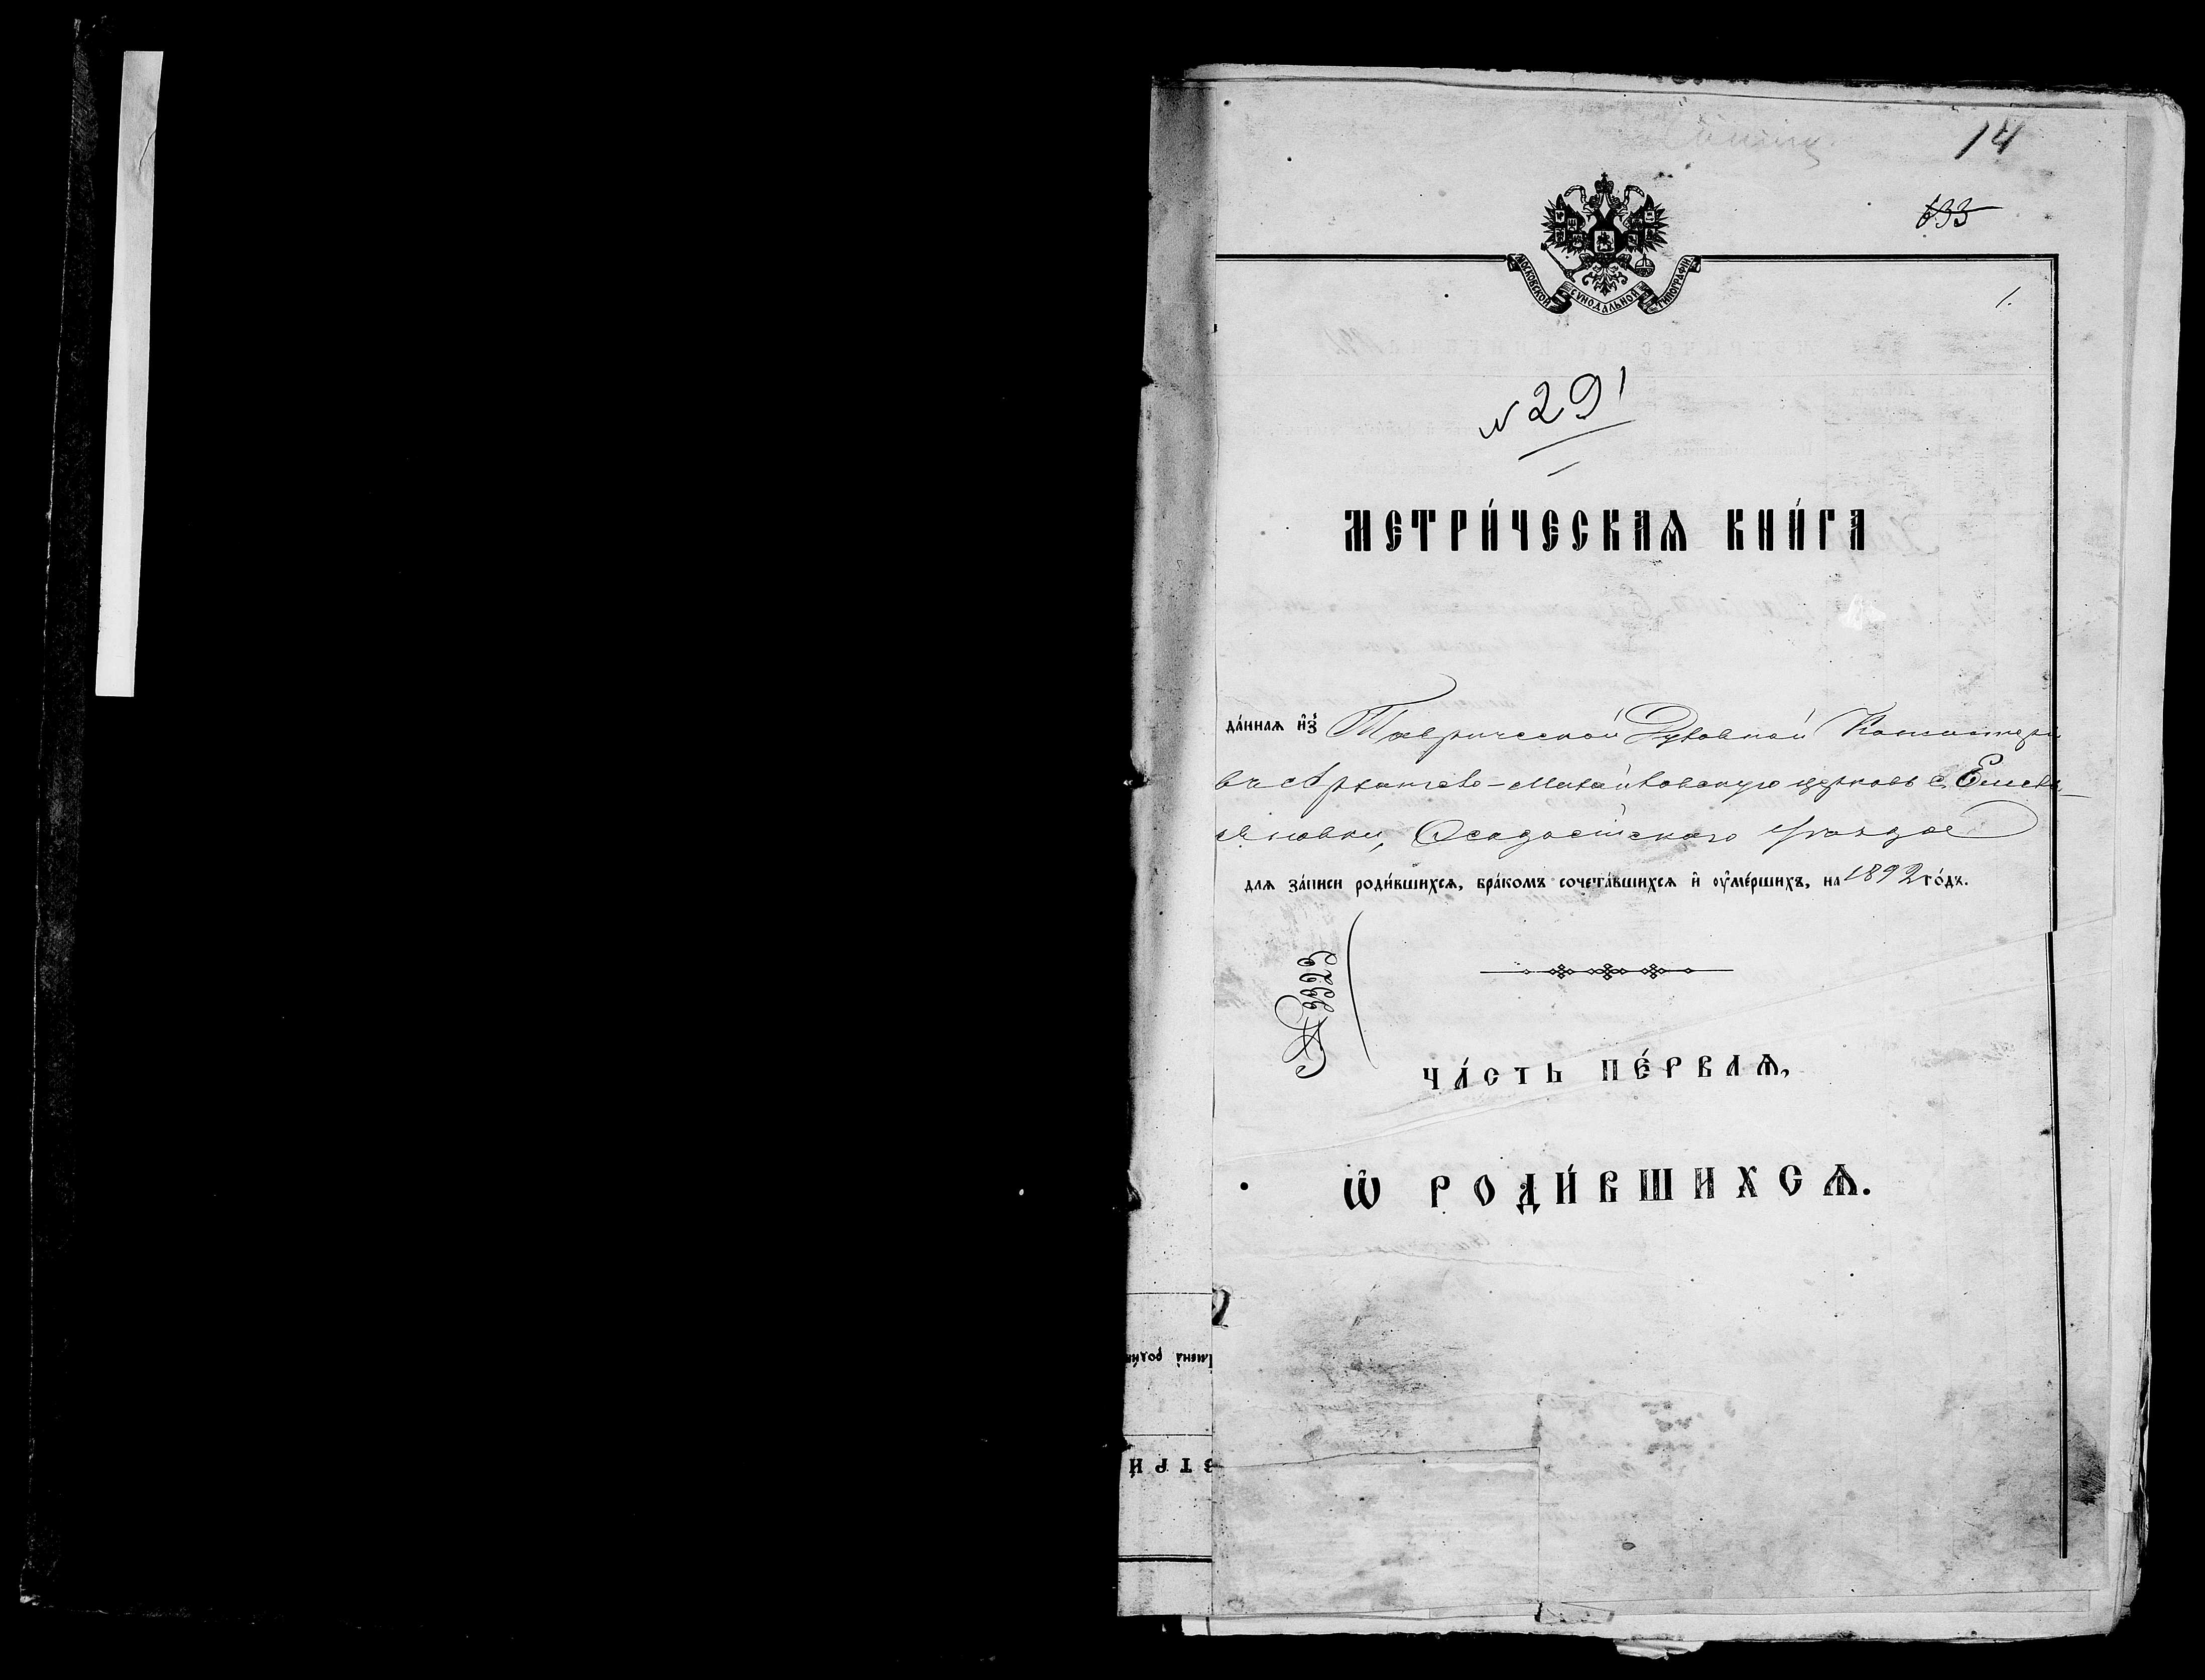 14
633
МОСКОВСКОЙ СѴНОДАЛЬНОЙ ТИПОГРАФІИ
1.
№ 291
МЕТРИ́ЧЕСКАѦ КНИ́ГА
да́ннаѧ и҆з̾ Таврической Духовной Консистори
въ Архангело-Михайловскую церковь с. Емель-
яновки, Ѳеодосійскаго уѣзда
длѧ за́писи роди́вшихсѧ, бра́комъ сочета́вшихсѧ и҆ ᲂу҆ме́ршихъ, на 1892 го́дъ.
ЧА́СТЬ ПЕ́РВАѦ,
Ѡ҆ РОДИ́ВШИХСѦ.